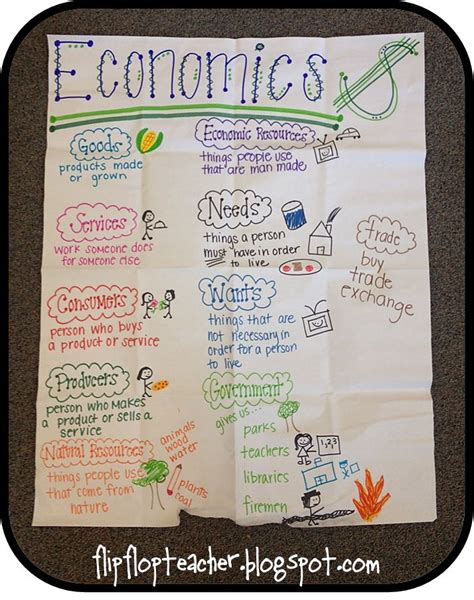 Economics $
Goods
products made
or grown
Economic Resources
things people use
that are man made
Services
work someone does
for someone else
Needs
things a person
must have in order
to live
trade
buy
trade
exchange
Consumers
person who buys
a product or service
Wants
things that are
not necessary in
order for a person
to live
Producers
person who makes
a product or sells a
service
Government
gives us...
parks
teachers
libraries
firemen
Natural Resources
things people use
that come from
nature
animals
wood
water
plants
coal
1,2,3
flipflopteacher.blogspot.com